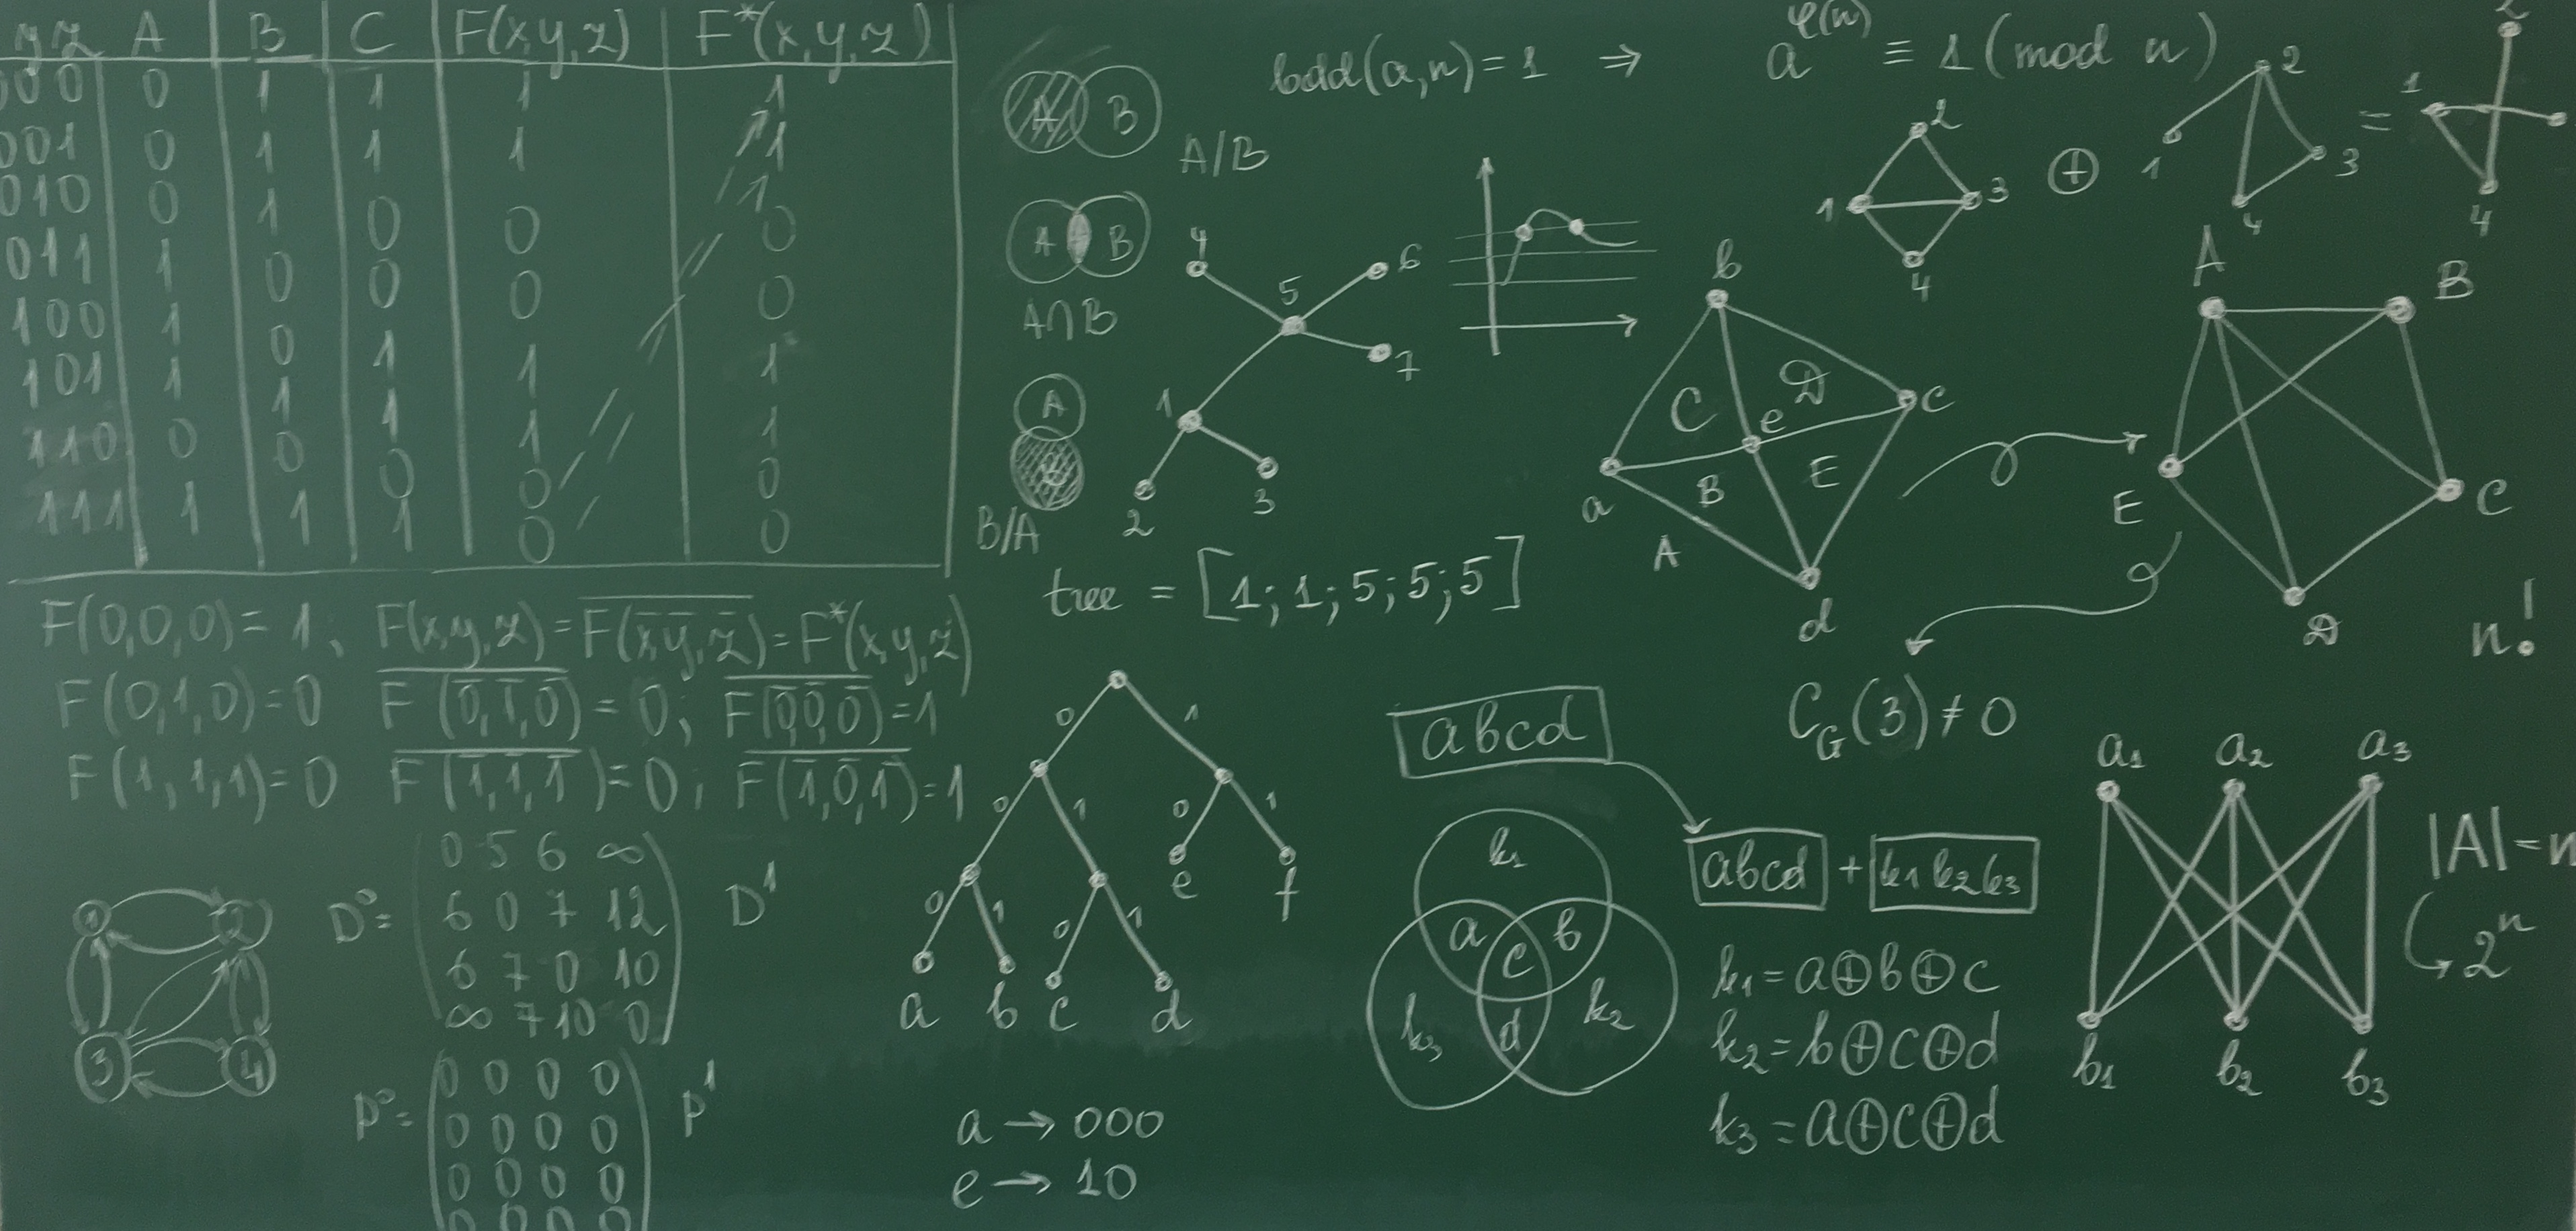 yz A B C F(x,y,z) F*(x,y,z)
000 0 1 1 1 1
001 0 1 1 1 1
010 0 1 0 0 1
011 1 0 0 0 0
100 1 0 1 1 0
101 1 1 1 1 1
110 0 0 0 0 1
111 1 1 1 0 0
0
F(0,0,0)=1; F(x,y,z)=F(x̄,ȳ,z̄)=F*(x,y,z)
F(0,1,0)=0 F(0̄,1̄,0̄)=0; F(0̄,0̄,0̄)=1
F(1,1,1)=0 F(1̄,1̄,1̄)=0; F(1̄,0̄,1̄)=1
1 2
3 4
D⁰=
0 5 6 ∞
6 0 7 12
6 7 0 10
∞ 7 10 0
D¹
P⁰=
0 0 0 0
0 0 0 0
0 0 0 0
0 0 0 0
P¹
A B
A/B
A B
A∩B
A
B/A
(a,n)=1 ⇒ a^φ(n) ≡ 1 (mod n)
4 5 6
7
1
2 3
tree = [1; 1; 5; 5; 5]
0 1
0 1 0 1
0 1 0 1 e f
a b c d
a → 000
e → 10
2
1 3
4
⊕
2
1 3
4
=
2
1
4
b
C D
e c
a B E
A
d
A B
E C
D
C_G(3) ≠ 0
n!
abcd
abcd + k₁k₂k₃
k₁
a b
c
k₃ d k₂
k₁=a⊕b⊕c
k₂=b⊕c⊕d
k₃=a⊕c⊕d
a₁ a₂ a₃
b₁ b₂ b₃
|A|=n
2ⁿ